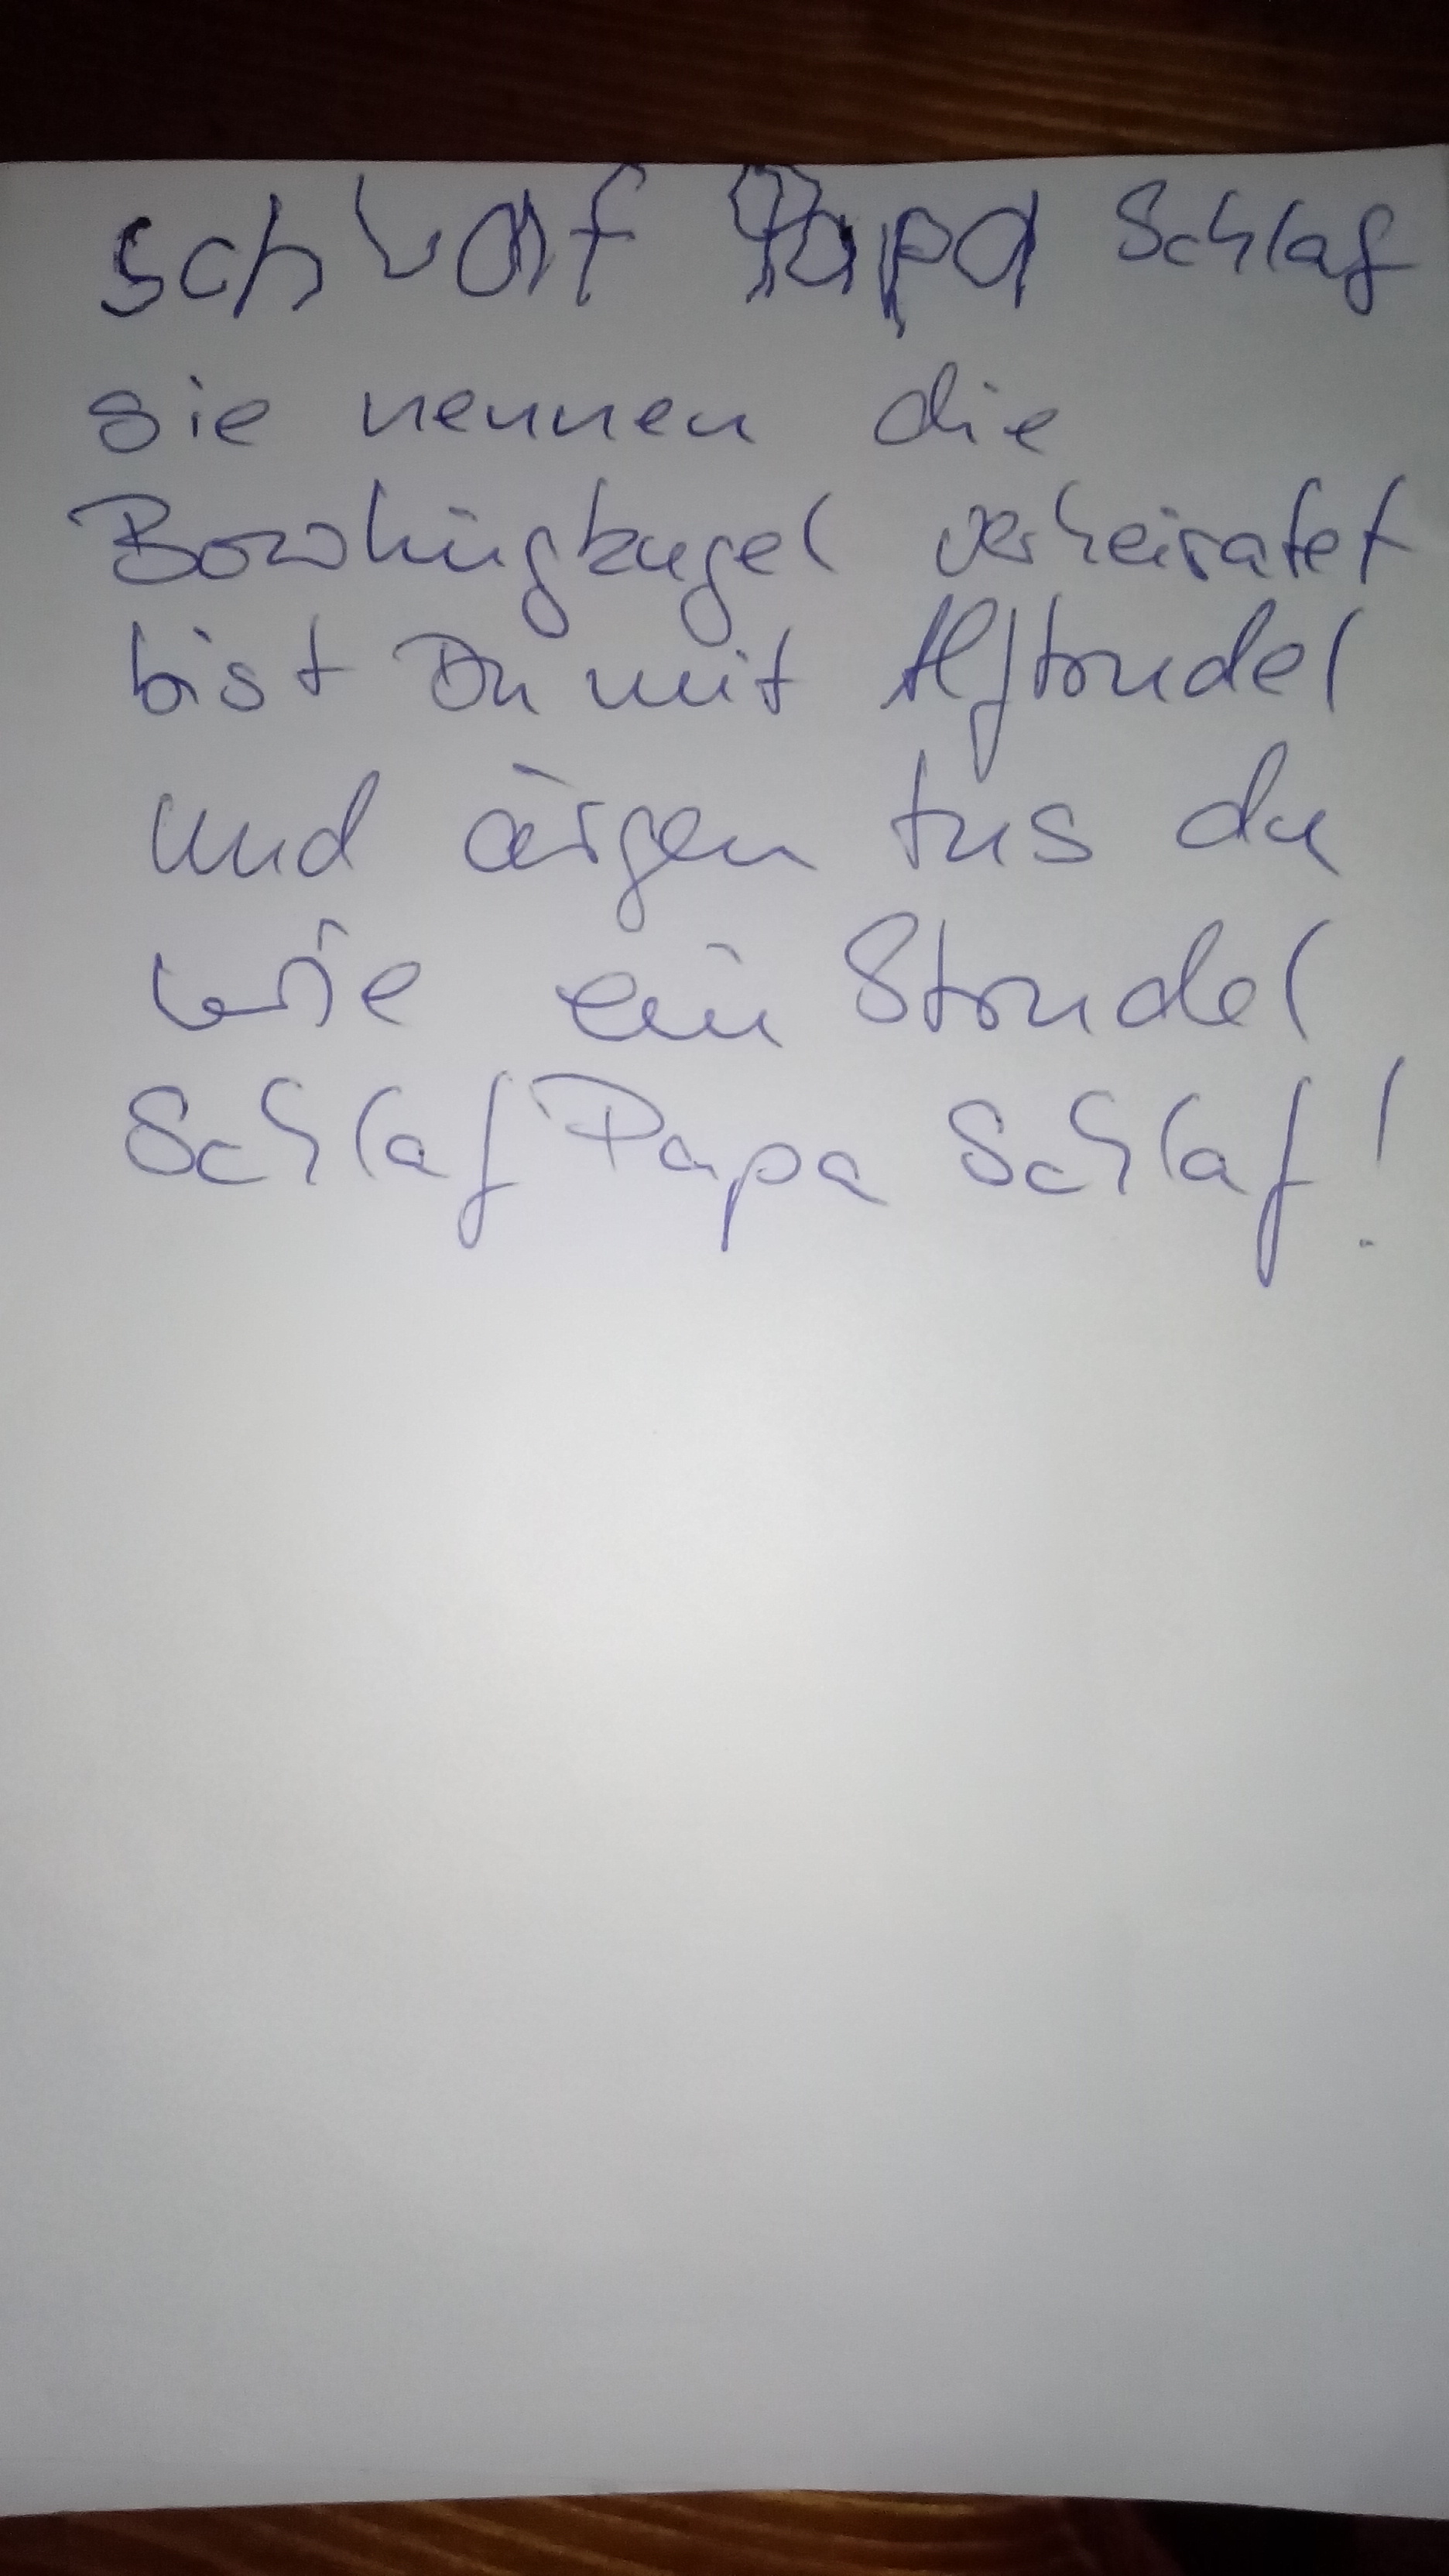 schlaf Papa Schlaf
sie nennen die
Bowlingkugel verheiratet
bist Du mit
und ärgen tus du
wie ein Strudel
Schlaf Papa Schlaf!